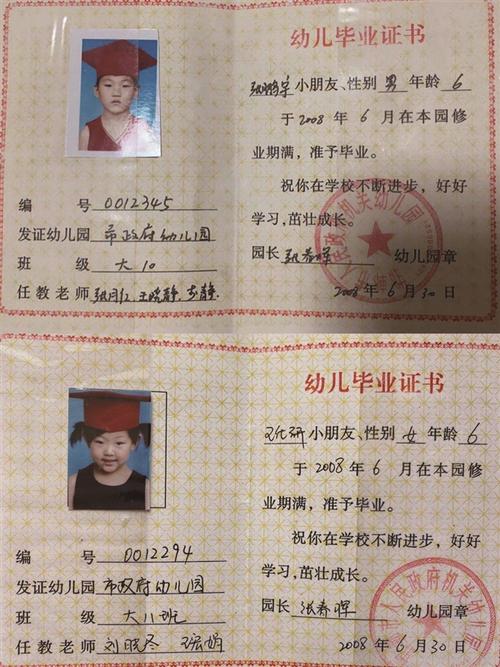 幼儿毕业证书
小朋友、性别 男 年龄 6
于 2008 年 6 月在本园修
业期满，准予毕业。
祝你在学校不断进步，好好
学习，茁壮成长。
园长 张春晖 幼儿园章
2008 年 6 月 30 日
编 号 0012345
发证幼儿园 市政府幼儿园
班 级 大10
任教老师
人民政府机关幼儿园
幼儿毕业证书
小朋友、性别 女 年龄 6
于 2008 年 6 月在本园修
业期满，准予毕业。
祝你在学校不断进步，好好
学习，茁壮成长。
园长 张春晖 幼儿园章
2008 年 6 月 30 日
编 号 0012294
发证幼儿园 市政府幼儿园
班 级 大八班
任教老师 刘晓冬
人民政府机关幼儿园